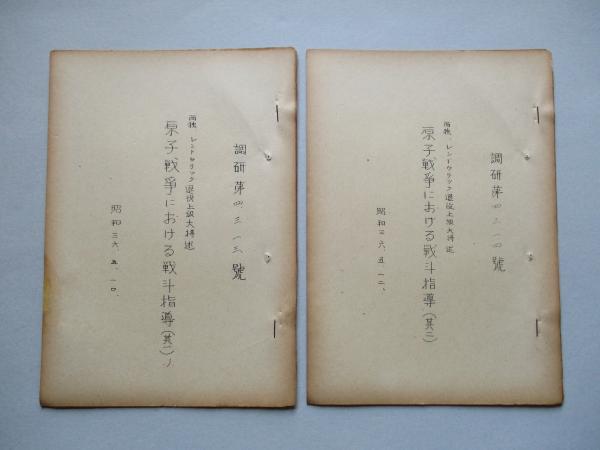 調研第四三一三號
西独 レンドウリック退役上級大将述
原子戦争における戦斗指導(其一)
昭和三六、五、一〇、
調研第四三一四號
西独 レンドウリック退役上級大将述
原子戦争における戦斗指導(其二)
昭和三六、五、一二、